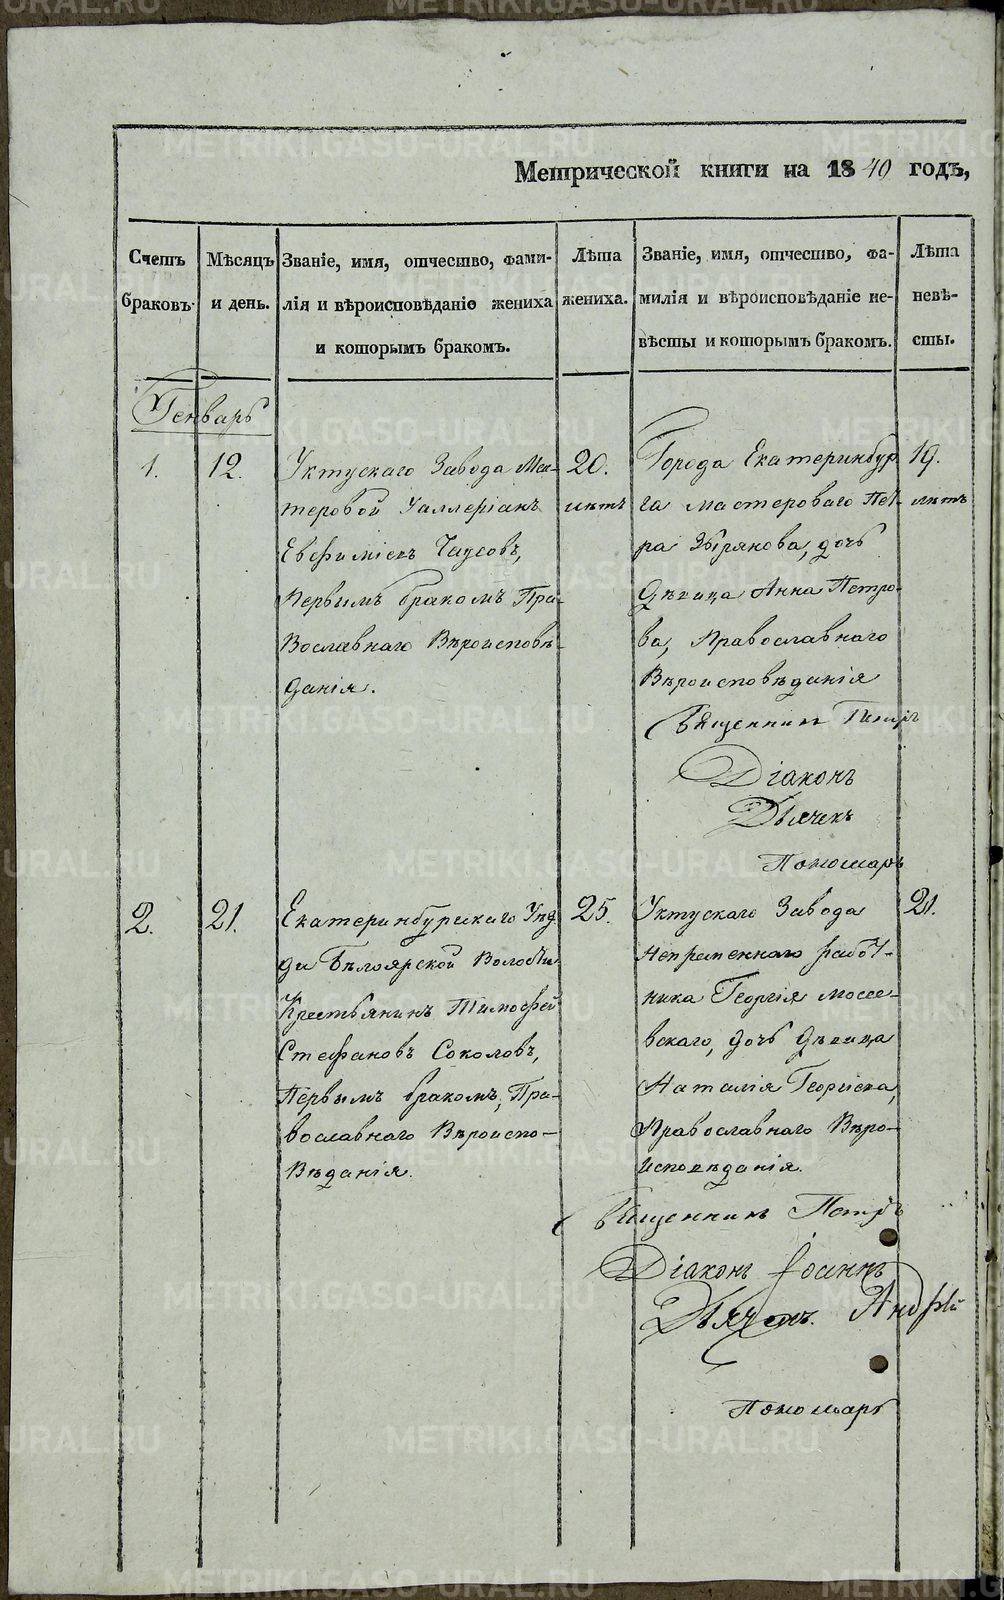 Метрической книги на 1840 годъ,
Счетъ браковъ.
Мѣсяцъ и день.
Званіе, имя, отчество, фами-
лія и вѣроисповѣданіе жениха
и которымъ бракомъ.
Лѣта
жениха.
Званіе, имя, отчество, фа-
милія и вѣроисповѣданіе не-
вѣсты и которымъ бракомъ.
Лѣта
невѣ-
сты.
Генварь
1.
12.
Уктускаго Завода Мас-
теровой Уаллеріанъ
Евфиміевъ Чаусовъ,
Первымъ бракомъ Пра-
вославнаго Вѣроисповѣ-
данія.
20.
лѣтъ
Города Екатеринбур
га мастероваго Пет-
ра Зырянова, дочь
Дѣвица Анна Петро-
ва, Православнаго
Вѣроисповѣданія
19.
лѣтъ
Священникъ Петръ
Діаконъ
Дьячекъ
Пономарь
2.
21.
Екатеринбурскаго Уѣз
да Бѣлоярской Волости
Крестьянинъ Тимофей
Стефановъ Соколовъ,
Первымъ бракомъ, Пра-
вославнаго Вѣроиспо-
вѣданія.
25.
Уктускаго Завода
Непременнаго работ-
ника Георгія
вскаго, дочь дѣвица
Наталія Георгіева,
Православнаго Вѣро-
исповѣданія.
21.
Священникъ Петръ
Діаконъ Іоаннъ
Дьячекъ. Андрей
Пономарь
METRIKI.GASO-URAL.RU